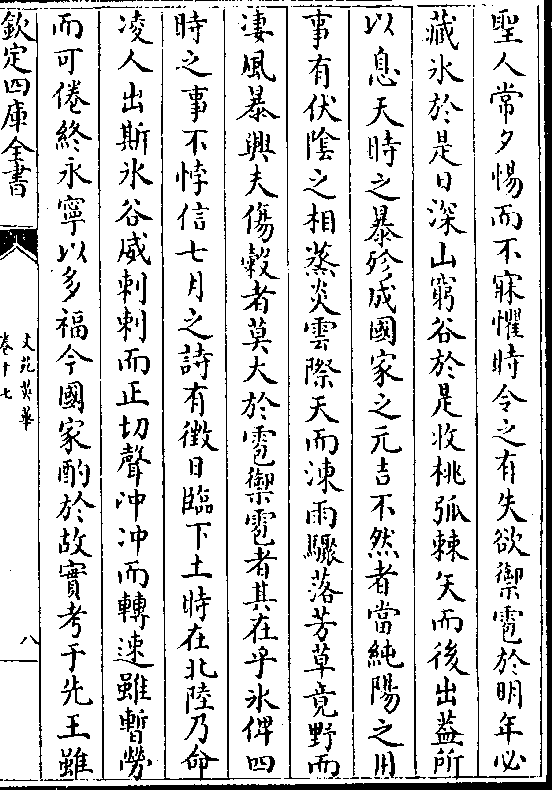 聖人常夕惕而不寐懼時令之有失欲禦雹於明年必
藏氷於是日深山窮谷於是收桃弧棘矢而後出益所
以息天時之暴殄成國家之元吉不然者當純陽之用
事有伏陰之相蒸炎雲際天而涷雨驟落芳草竟野而
淒風暴興夫傷榖者莫大於雹禦雹者其在乎氷俾四
時之事不悖信七月之詩有徴日臨下土時在北陸乃命
凌人出斯氷谷威刺刺而正切聲冲冲而轉速雖暫勞
而可倦終永寧以多福今國家酌於故實考于先王雖
欽定四庫全書
文苑英華
卷十七
八